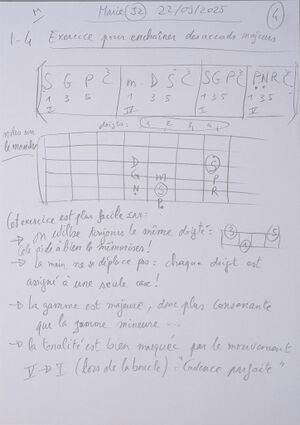 Marie (J2) 22/09/2025
4
1-4 Exercice pour enchaîner des accords majeurs
S G P | m D S | S G P | P N R
1 3 5 | 1 3 5 | 1 3 5 | 1 3 5
I IV I V
doigts: (1, 2, 3, 4)
notes sur
le manche
D S
G m P
N S R
P
Cet exercice est plus facile car:
→ on utilise toujours le même doigté:
Cela aide à bien le mémoriser!
3 5
1
→ la main ne se déplace pas: chaque doigt est
assigné à une seule case!
→ la gamme est majeure, donc plus consonante
que la gamme mineure...
→ la tonalité est bien marquée par le mouvement
V → I (lors de la boucle): "Cadence parfaite"